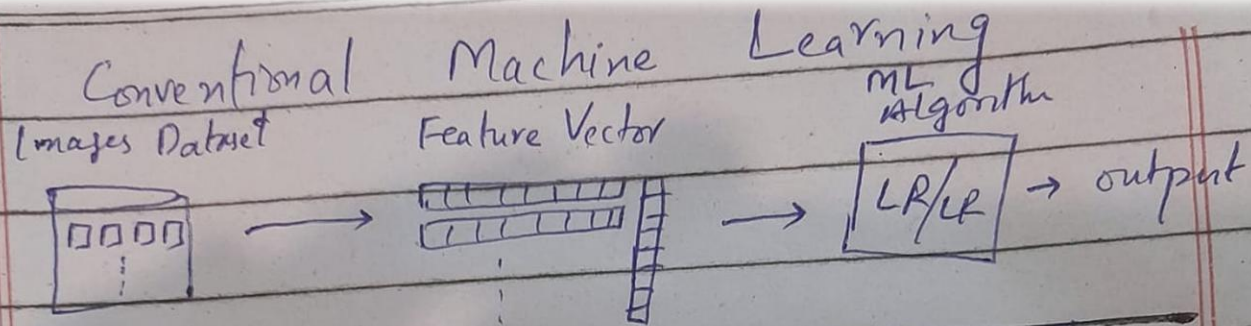 Conventional Machine Learning
Images Dataset Feature Vector ML Algorithm
LR/LR → output